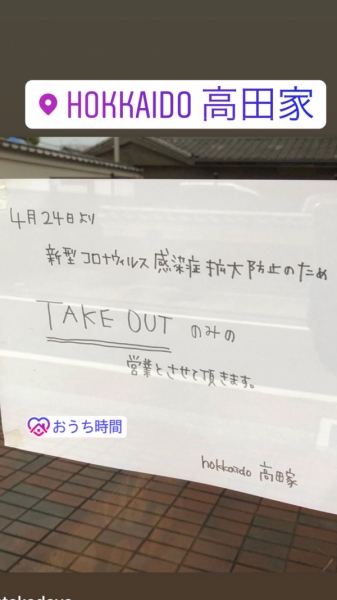 HOKKAIDO 高田家
4月24日より
新型コロナウィルス感染症拡大防止のため
TAKE OUT のみの
営業とさせて頂きます。
おうち時間
hokkaido 高田家